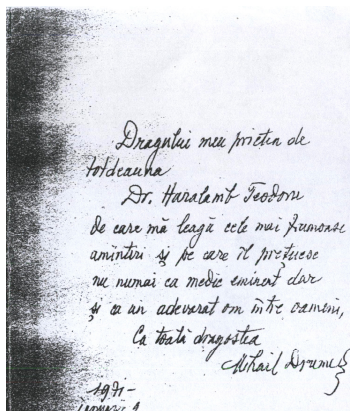 Dragului meu prieten de
totdeauna
Dr. Haralamb Teodoru
de care mă leagă cele mai frumoase
amintiri și pe care îl prețuiesc
nu numai ca medic eminent dar
și ca un adevarat om între oameni,
Cu toată dragostea
Mihail Drumeș
1971 -
Ianuarie